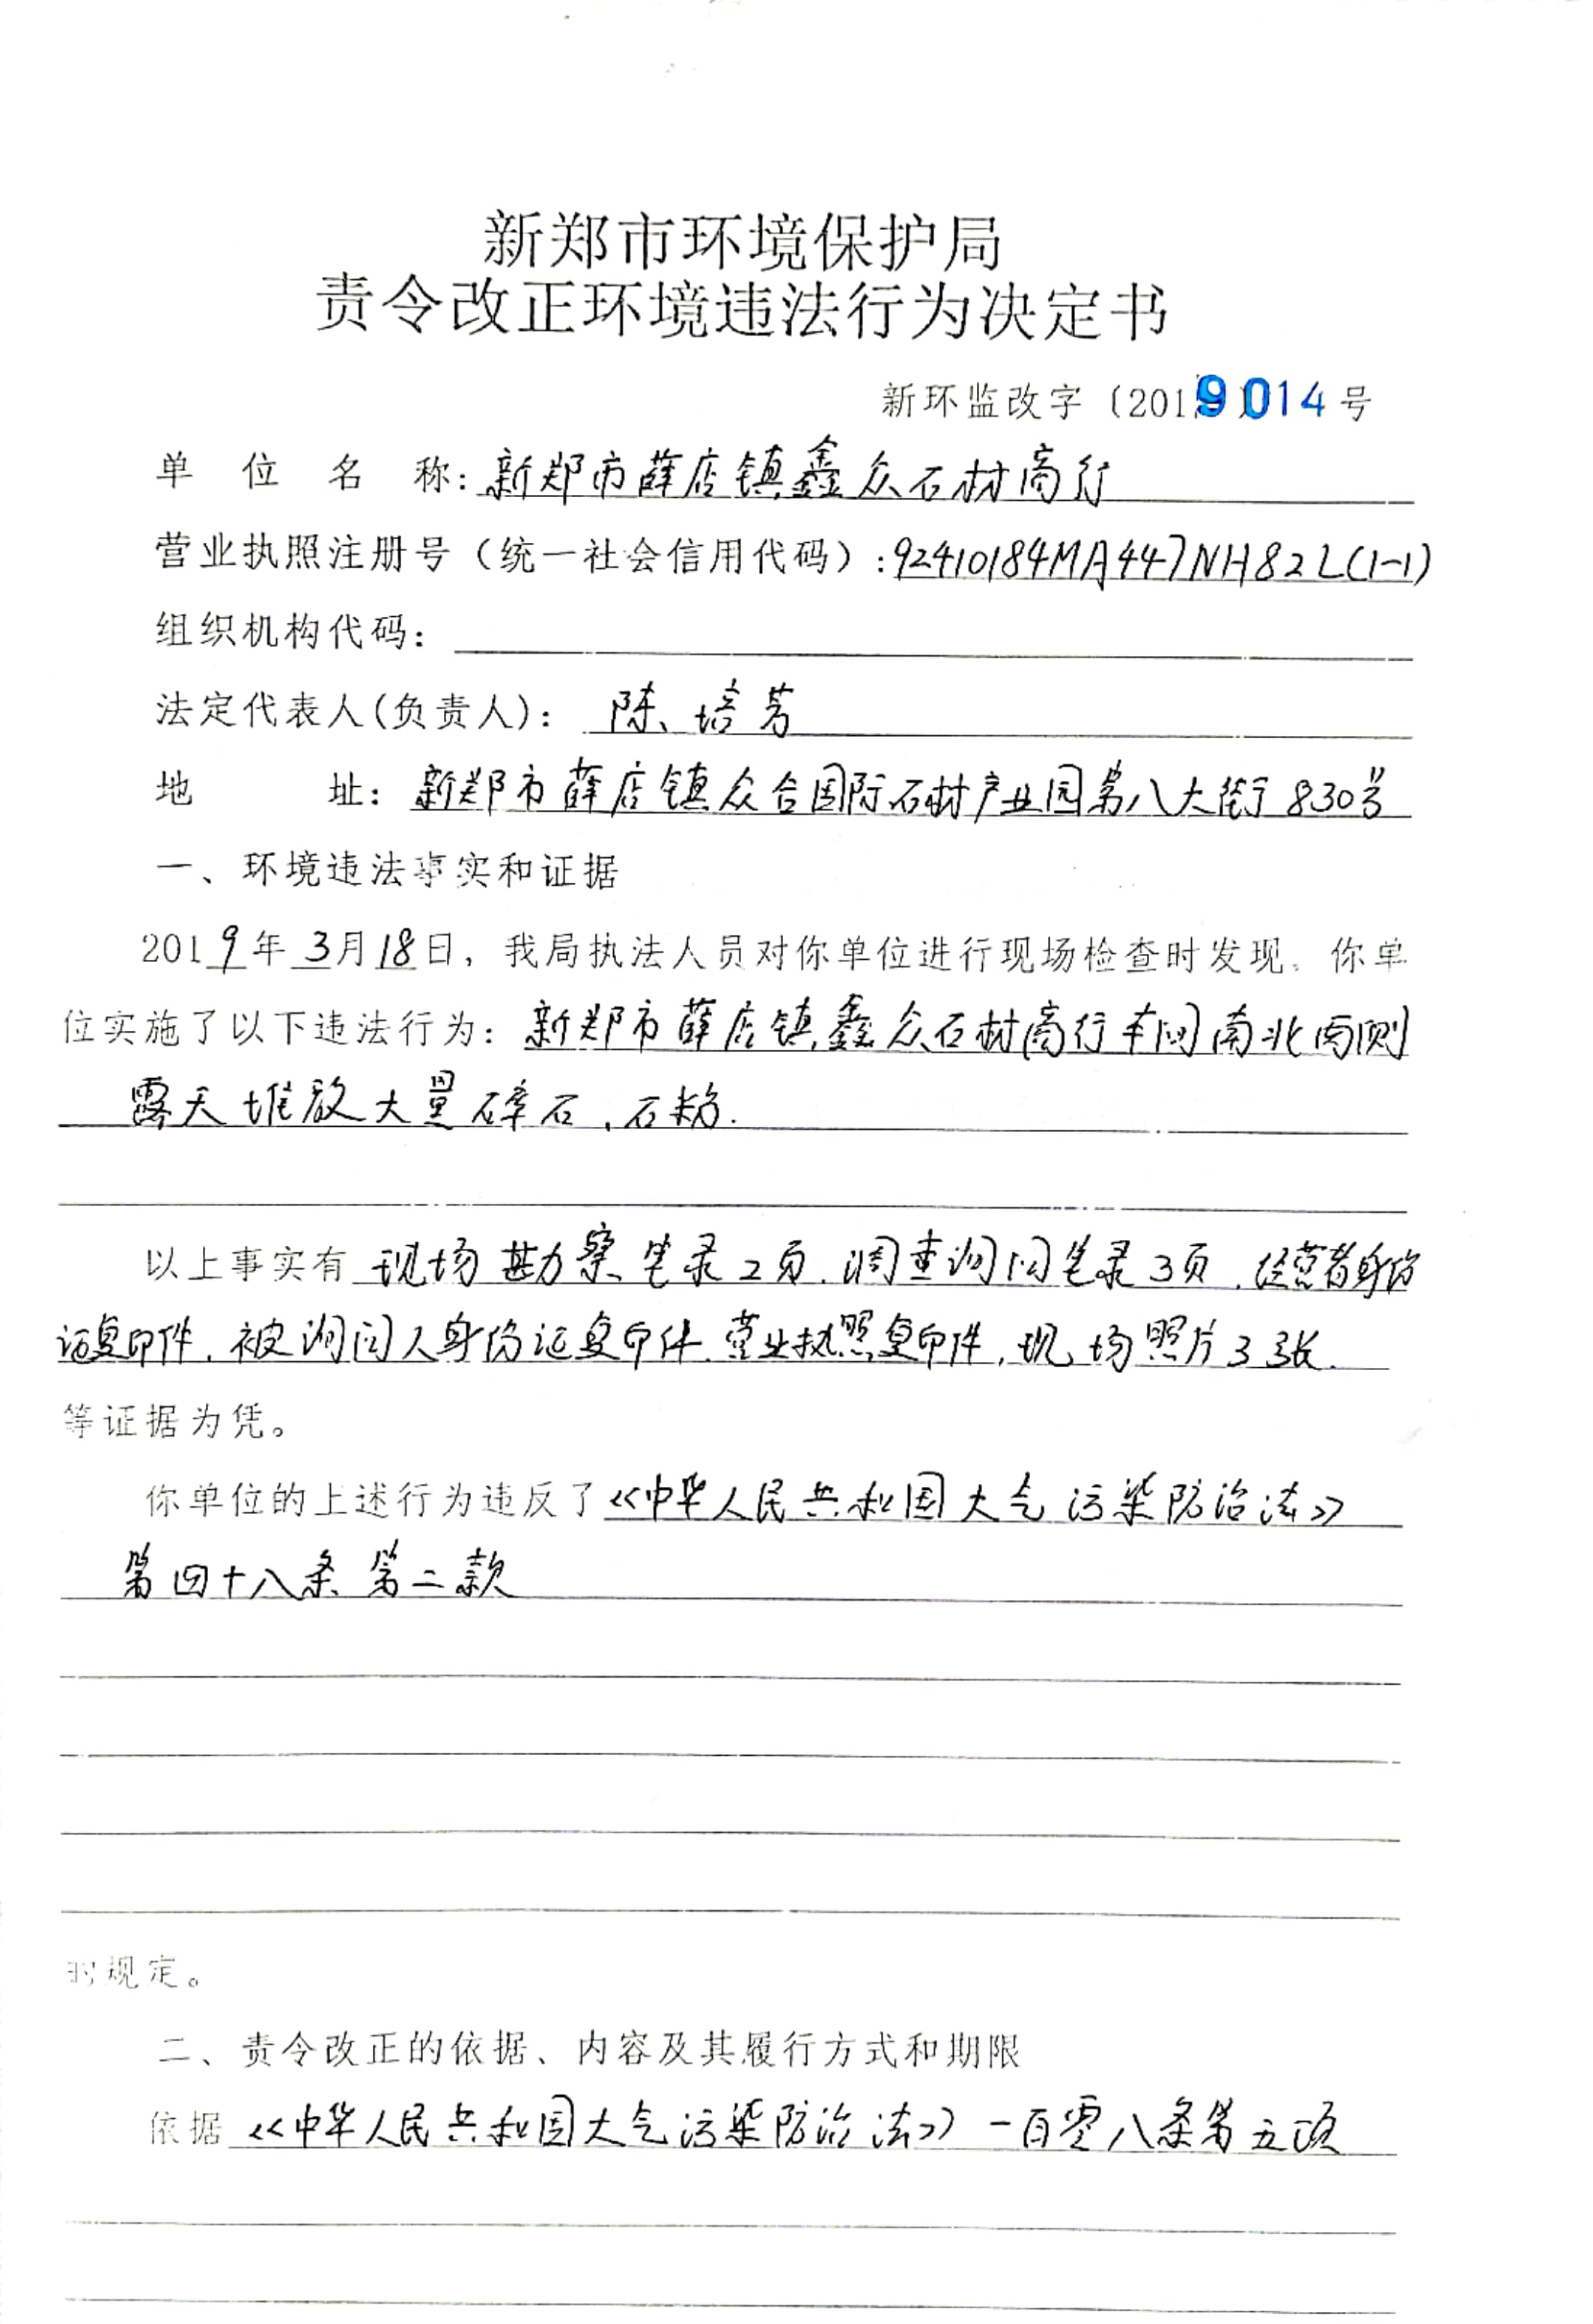 新郑市环境保护局
责令改正环境违法行为决定书
新环监改字〔2019 014号
单位名称：新郑市薛店镇鑫众石材商行
营业执照注册号（统一社会信用代码）：92410184MA447NH82L(1-1)
组织机构代码：
法定代表人(负责人)：陈培芳
地址：新郑市薛店镇众合国际石材产业园第八大街830号
一、环境违法事实和证据
2019年3月18日，我局执法人员对你单位进行现场检查时发现，你单
位实施了以下违法行为：新郑市薛店镇鑫众石材商行车间南北两侧
露天堆放大量碎石，石粉.
以上事实有现场勘察笔录2页，调查询问笔录3页，经营者身份
证复印件，被询问人身份证复印件，营业执照复印件，现场照片3张.
等证据为凭。
你单位的上述行为违反了《中华人民共和国大气污染防治法》
第四十八条第二款
的规定。
二、责令改正的依据、内容及其履行方式和期限
依据《中华人民共和国大气污染防治法》一百零八条第五项